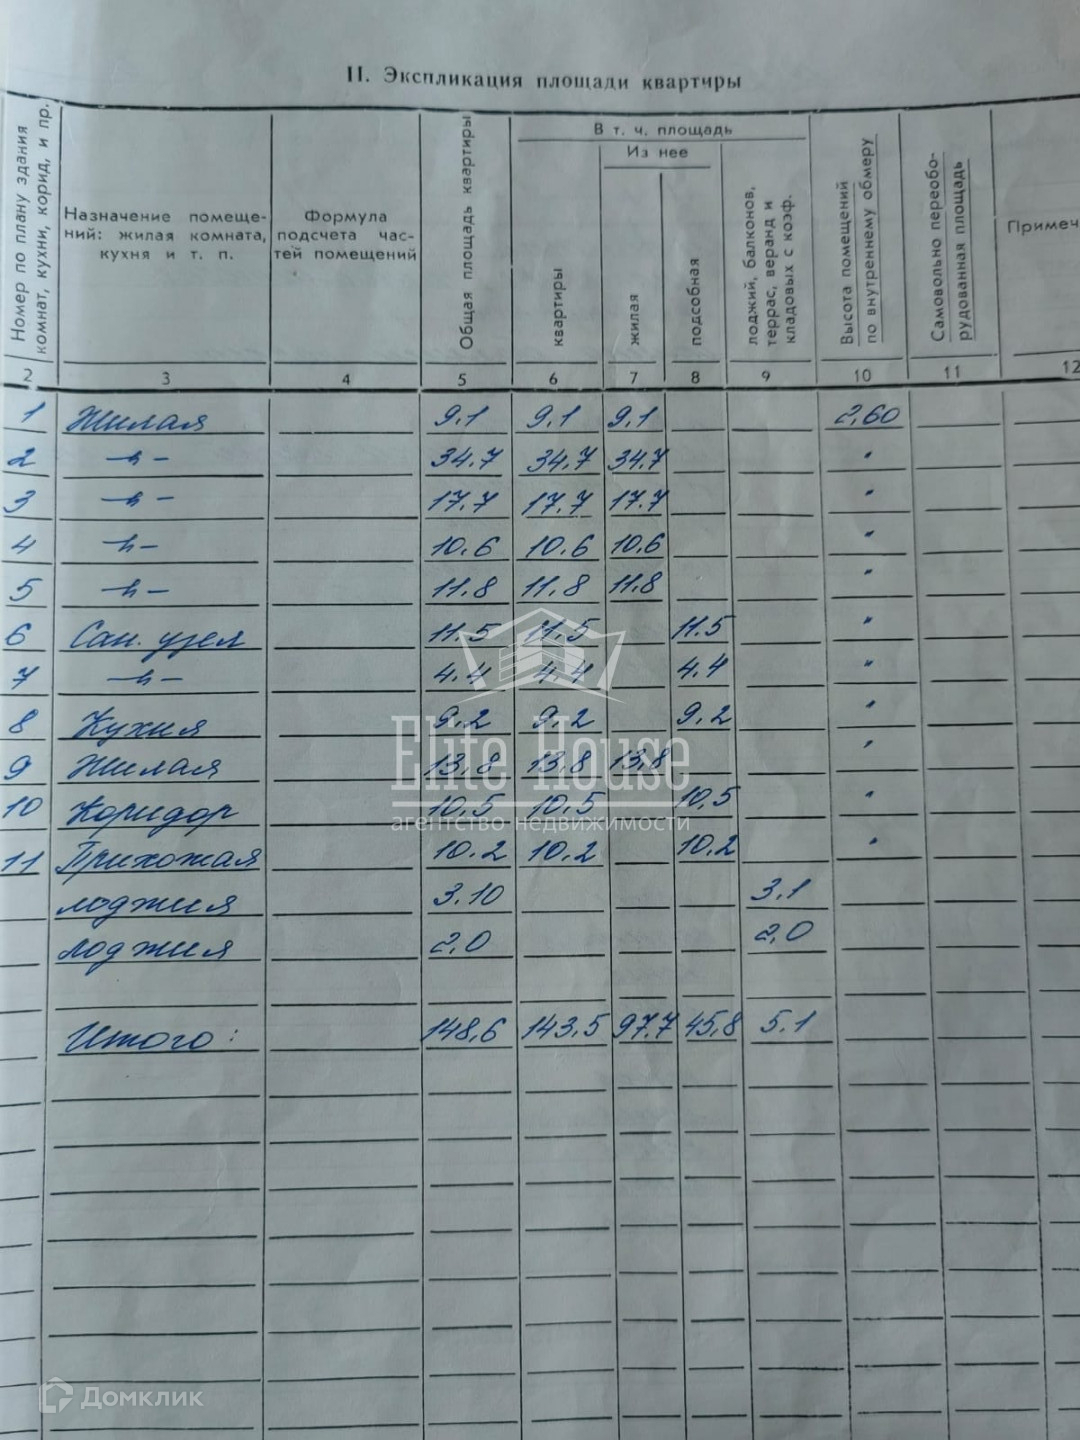 II. Экспликация площади квартиры
Номер по плану здания
комнат, кухни, корид, и пр.
Назначение помеще-
ний: жилая комната,
кухня и т. п.
Формула
подсчета час-
тей помещений
Общая площадь квартиры
В т. ч. площадь
Из нее
квартиры
жилая
подсобная
лоджий, балконов,
террас, веранд и
кладовых с коэф.
Высота помещений
по внутреннему обмеру
Самовольно переобо-
рудованная площадь
Примеч
2 3 4 5 6 7 8 9 10 11 12
1 Жилая 9.1 9.1 9.1 2,60
2 -"- 34.7 34.7 34.7 "
3 -"- 17.7 17.7 17.7 "
4 -"- 10.6 10.6 10.6 "
5 -"- 11.8 11.8 11.8 "
6 Сан. узел 11.5 11.5 11.5 "
7 -"- 4.4 4.4 4.4 "
8 Кухня 9.2 9.2 9.2 "
9 Жилая 13,8 13,8 13,8 "
10 Коридор 10,5 10,5 10,5 "
11 Прихожая 10.2 10.2 10.2 "
лоджия 3.10 3.1
лоджия 2,0 2,0
Итого: 148,6 143,5 97.7 45,8 5.1
Elite House
агентство недвижимости
Домклик